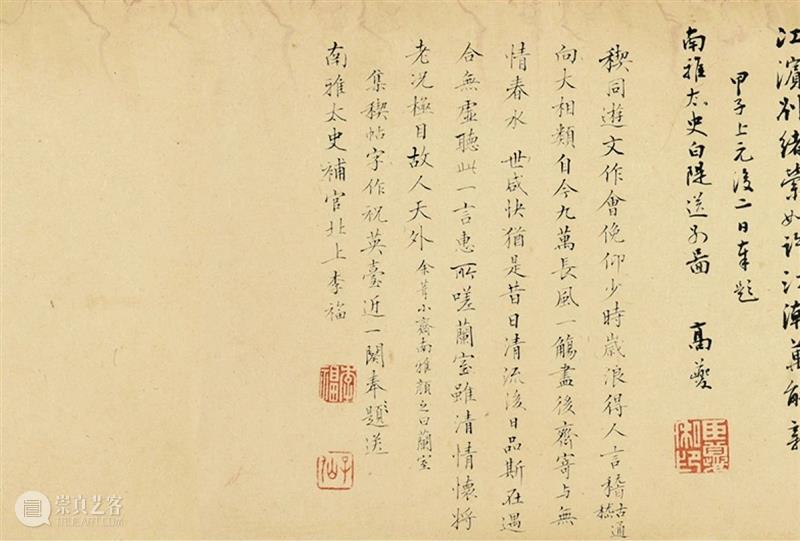 江濱別緒縈
甲子上元後二日奉題
南雅太史白隄送別圖　高夔
稧同遊文作會俛仰少時歲浪得人言稽古通
向大相類自今九萬長風一觴盡後齊寄与無
情春水　世感快猶是昔日清流後日品斯在遇
合無虛聽此一言惠所嗟蘭室雖清情懷將
老況極目故人天外　余葺小齋南雅顏之曰蘭室
集稧帖字作祝英臺近一闋奉題送
南雅太史補官北上李福
李福
子仙
崇真艺客